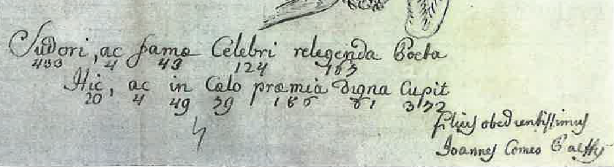 Sudori, ac famæ Celebri relegenda Poeta
433 4 43 124 167
Hic, ac in Cælo præmia digna Cupit
20 4 49 79 186 61 372
filius obedientissimus
Joannes Comes Palffy